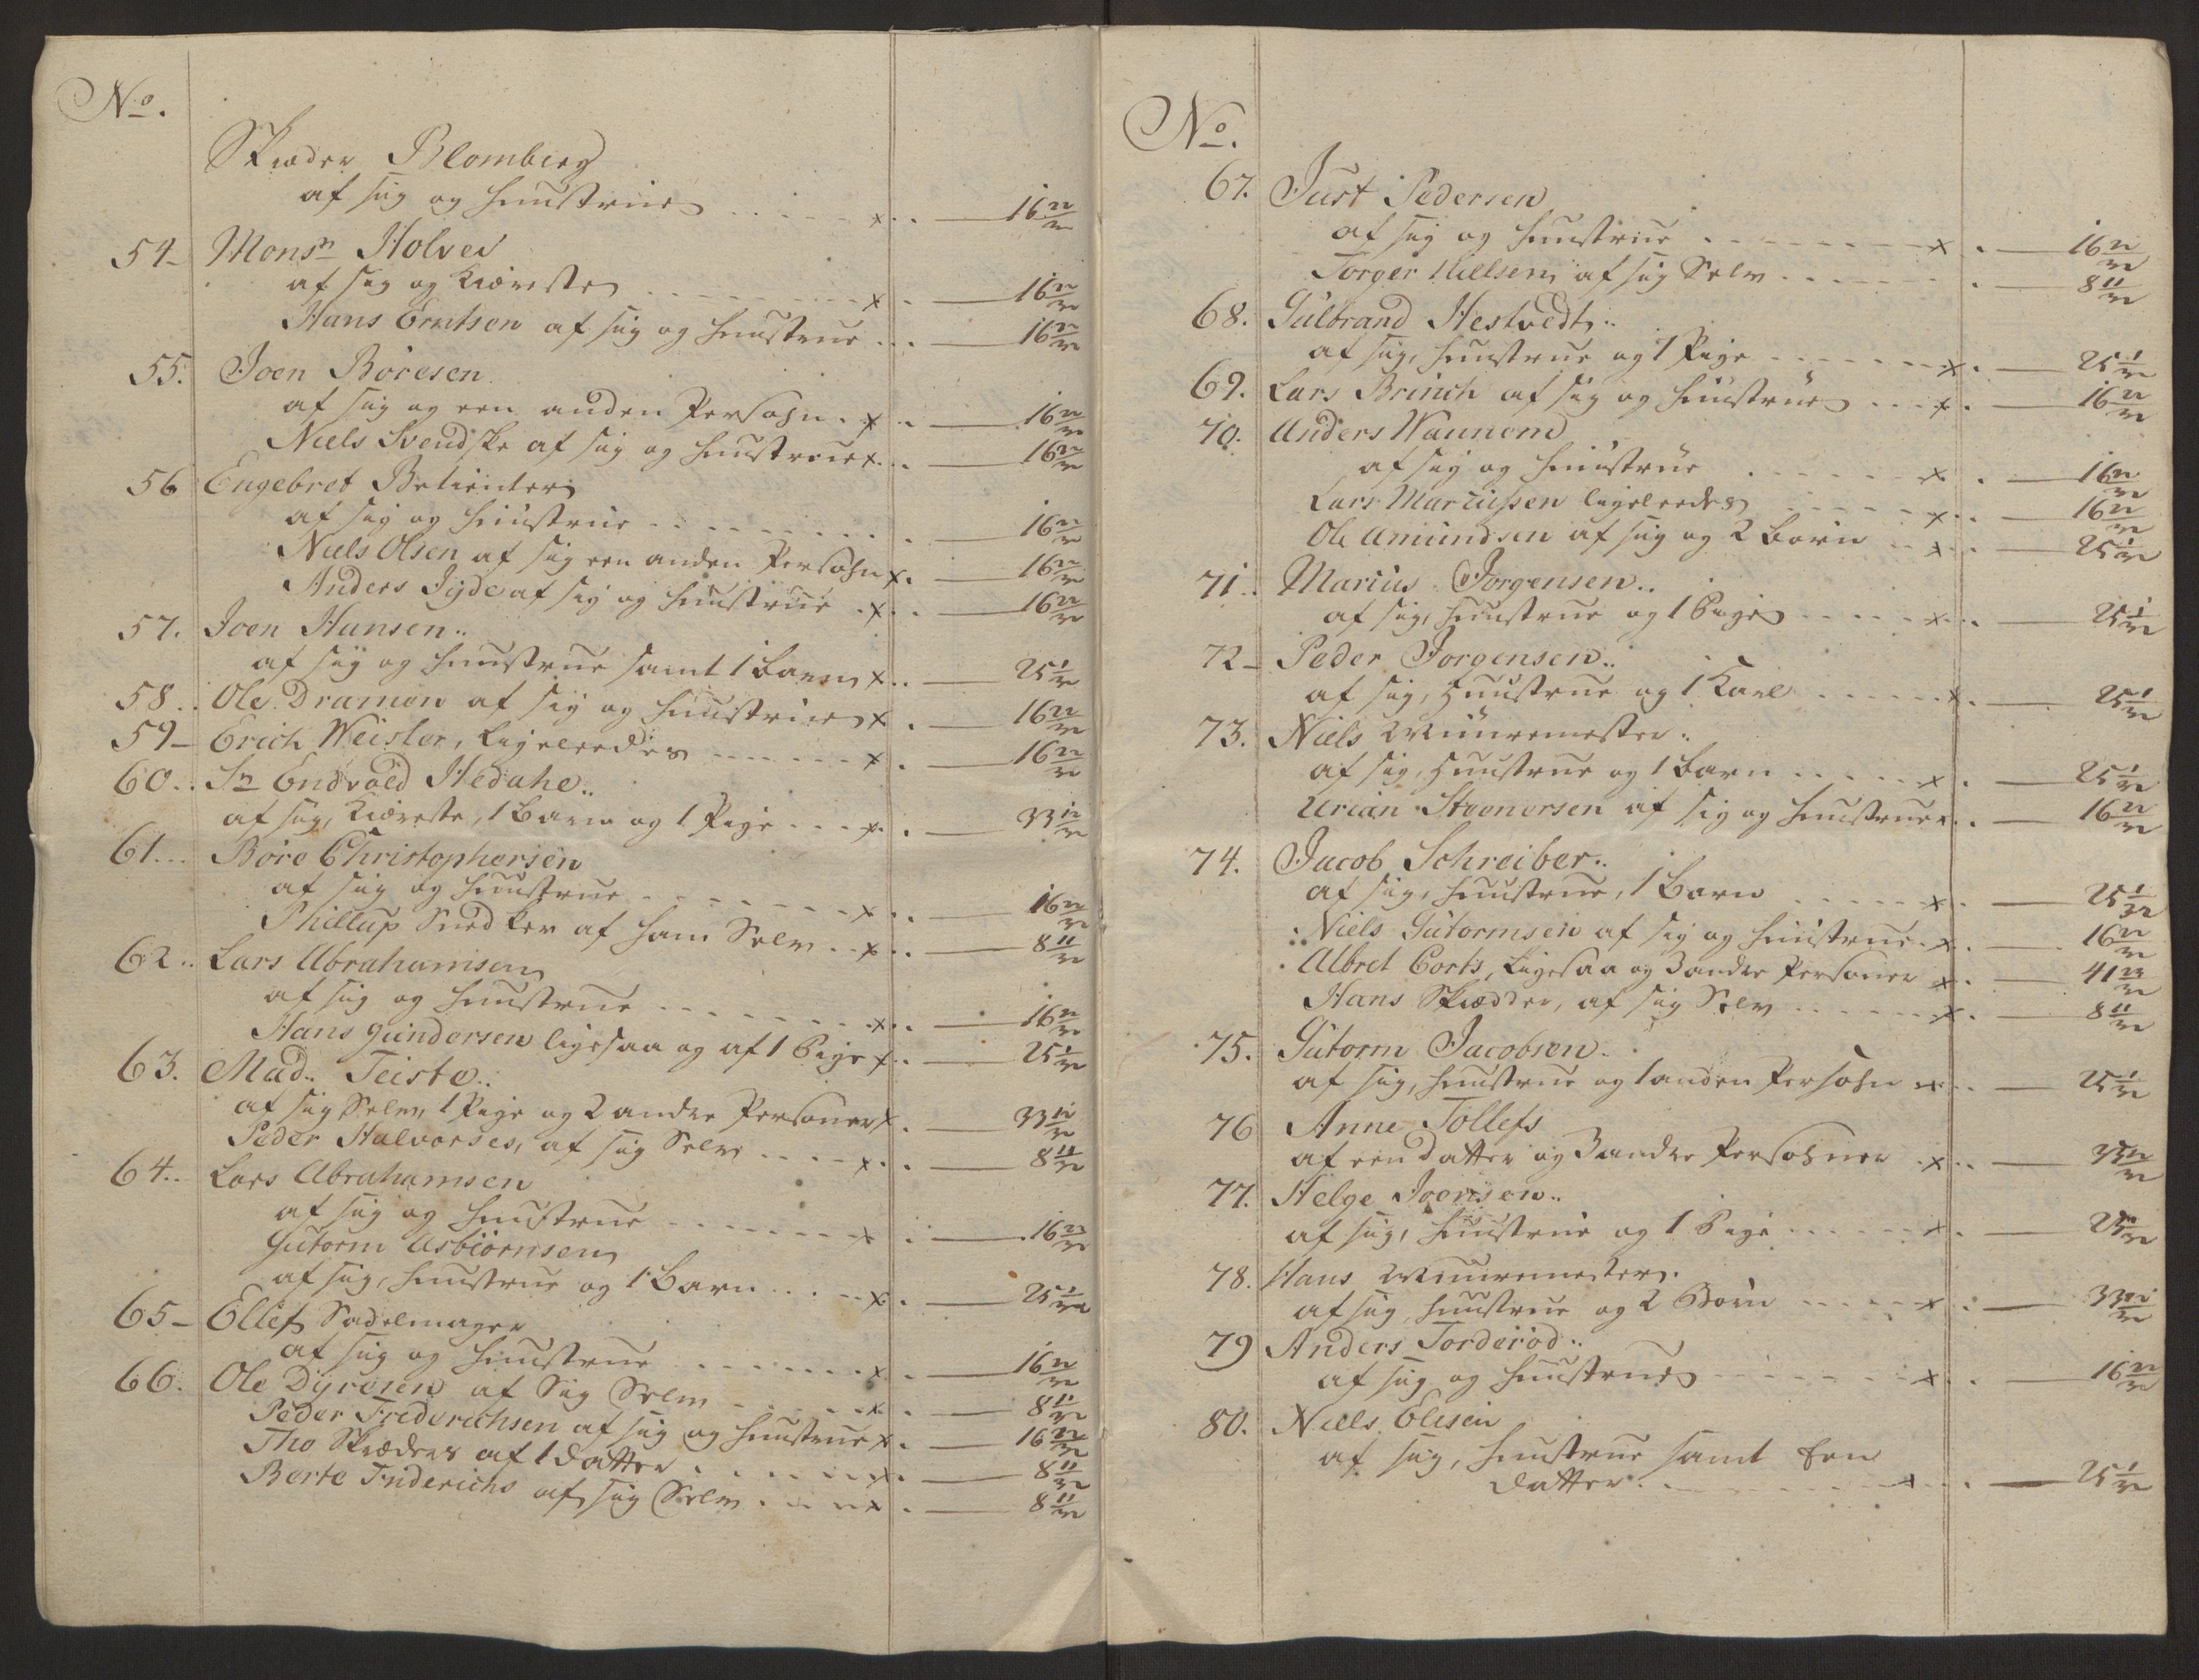 No.
Skræder Blomberg
af sig og Huustrue . . . . . x . . — 16 22/32
54 – Monsr Holver
af sig og Kiæreste . . . . . x . — 16 22/32
Hans Erntsen af sig og Huustrue . . . — 16 22/32
55. Joen Böresen
af sig og een anden Persohn . x . . — 16 22/32
Niels Svendske af sig og Huustrue x . . . — 16 22/32
56 Engebret Betienter
af sig og Huustrue . . . . . — 16 22/32
Niels Olsen af sig een anden Persohn x . — 16 22/32
Anders Jÿde af sig og Huustrue . x . . — 16 22/32
57. Joen Hansen ..
af sig og Huustrue samt 1 Barn x . . — 25 1/32
58 . . Ole Dramen af sig og Huustrue x . — 16 22/32
59 – Erich Weisler, Ligeleedes . . . . x . — 16 22/32
60 . . Sr Endvold Hedahe ..
af sig, Kiæreste, 1 Barn og 1 Pige . . . x . . — 33 12/32
61 . . . Böre Christophersen
af sig og Huustrue . . . . . x . . — 16 22/32
Phillup Snedker af ham Selv . . x . . — 8 11/32
62 . . Lars Abrahamsen
af sig og Huustrue . . . . . x . . — 16 22/32
Hans Gundersen ligesaa og af 1 Pige x . . — 25 1/32
63. Mad. Teiste ..
af sig Selv, 1 Pige og 2 andre Personer x . — 33 12/32
Peder Halvorses, af sig Selv . . . . x . . — 8 11/32
64 . . Lars Abrahamsen
af sig og Huustrue . . . . . x . — 16 22/32
Gutorm Asbiörnsen
af sig, Huustrue og 1 Barn . . . x . — 25 1/32
65 – Ellef Sadelmager
af sig og Huustrue . . . . . x . — 16 22/32
66. Ole Dyresen af Sig Selv . . . . x . — 8 11/32
Peder Friderichsen af sig og Huustrue x . — 16 22/32
Tho Skræders af 1 Datter . . . . . x . — 8 11/32
Berte Friderichs af sig Selv . . . . x . — 8 11/32
No.
67. Just Pedersen
af sig og Huustrue . . . . . x . — 16 22/32
Torger Nillsen, af sig Selv . . . . . — 8 11/32
68. Gulbrand Hestvedt ..
af sig, Huustrue og 1 Pige . . . . . x . — 25 1/32
69. Lars Brinch af sig og Huustrue . . . x . — 16 22/32
70. Anders Waunem
af sig og Huustrue . . . . . x . — 16 22/32
Lars Marcussen ligeleedes . . . . . x . . — 16 22/32
Ole Amundsen af sig og 2 Börn . . x . . — 25 1/32
71 . . Marius Jorgensen ..
af sig, Huustrue og 1 Pige . . . . . x . . — 25 1/32
72 – Peder Jorgensen ..
af sig, Huustrue og 1 Karl . . . . . x . — 25 1/32
73. Niels Muuremester .
af sig, Huustrue og 1 Barn . . . . . x . — 25 1/32
Urian Steenersen af sig og Huustrue x . . — 16 22/32
74. Jacob Schreiber ..
af sig, Huustrue, 1 Barn . . . . . x . — 25 1/32
Niels Gutormsen af sig og Huustrue . x . — 16 22/32
Albret Corts, Ligesaa og 3 andre Personer x . — 41 23/32
Hans Skrædder, af sig Selv . . . . . x . — 8 11/32
75. Gutorm Jacobsen .
af sig, Huustrue og 1 anden Persohn x . . — 25 1/32
76 Anne Tollefs
af een Datter og 3 andre Persohner . x . . — 33 12/32
77. Helge Joensen ..
af sig, Huustrue og 1 Pige . . . . . x . — 25 1/32
78. Hans Muuremester .
af sig, Huustrue og 2 Börn . . . . . x . — 33 12/32
79 Anders Torderöd ..
af sig og Huustrue . . . . . x . . — 16 22/32
80. Niels Elesen
af sig, Huustrue samt Een
Datter . . . . . x . . — 25 1/32